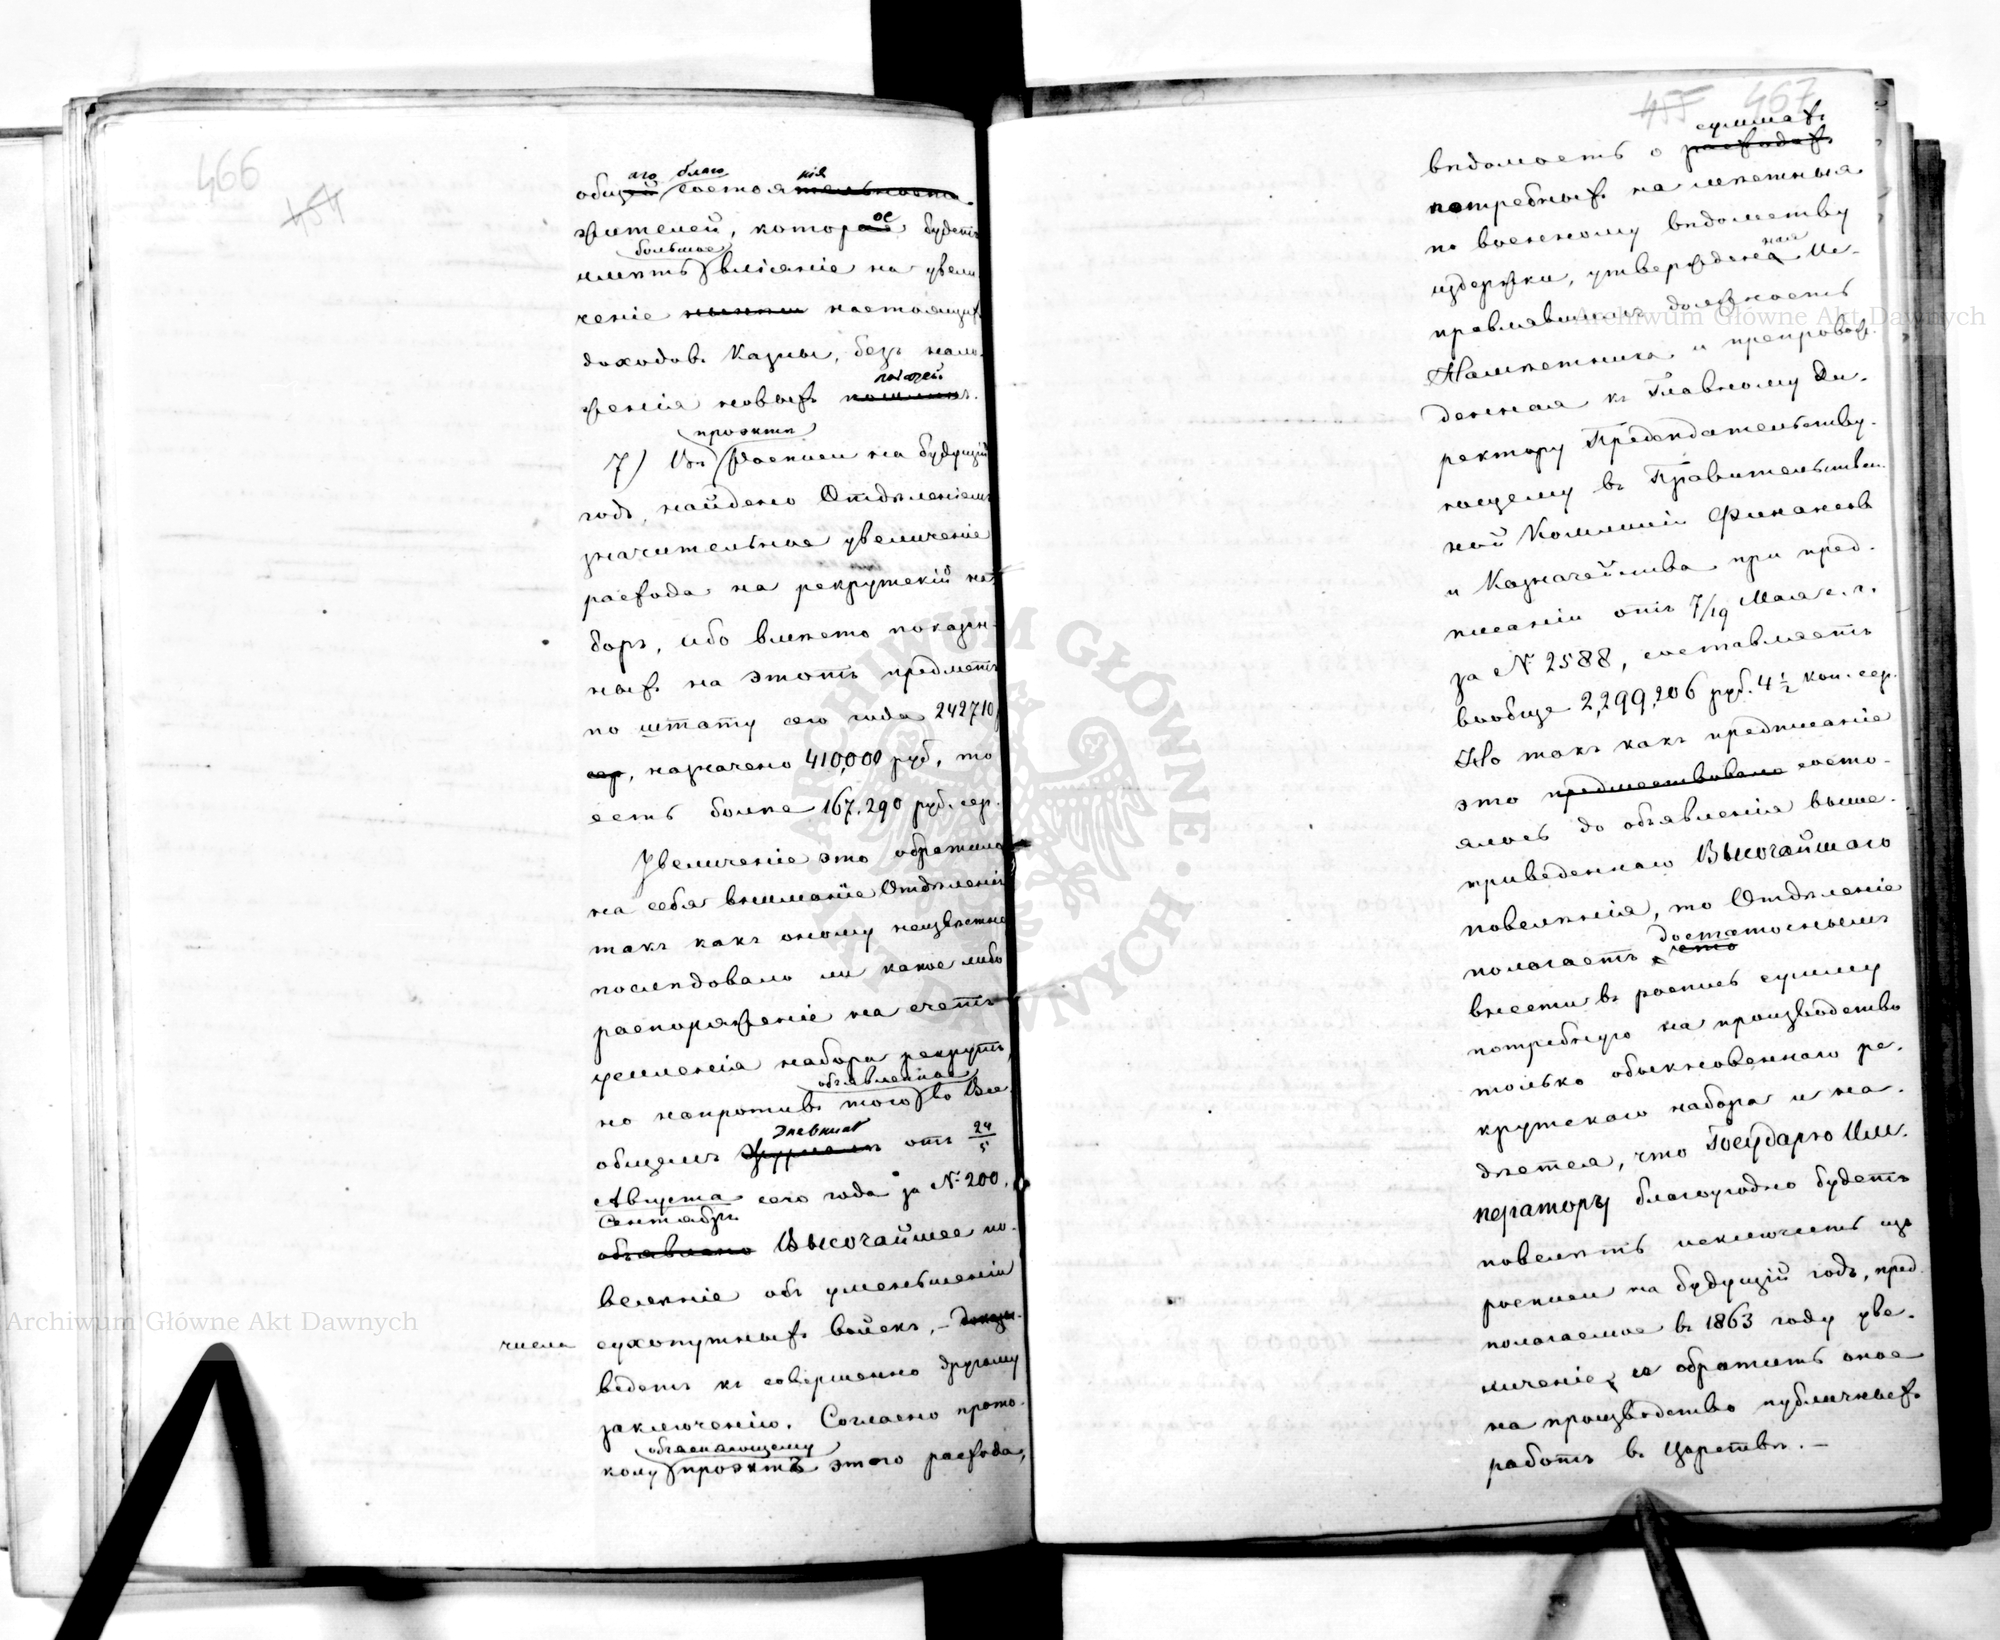 466
454
аго благо нія
общей состоятельность
жителей, которое будетъ
большое
имѣть вліяніе на увели-
ченіе настоящихъ
доходовъ Казны, безъ нало-
податей
женія новыхъ пошлинъ.
проэктѣ
7) Въ росписи на будущій
годъ, найдено Отдѣленіемъ
значительное увеличеніе
расхода на рекрутскій на-
боръ, ибо вмѣсто показан-
ныхъ на этотъ предметъ
по штату сего года 242710
сер, назначено 410,000 руб, то
есть болѣе 167.290 руб. сер.
Увеличеніе это обратило
на себя вниманіе Отдѣленія
такъ какъ оному неизвѣстно
послѣдовало ли какое либо
распоряженіе на счетъ
усиленія набора рекрутъ,
объявленное
но напротивъ того во Все-
Дневникѣ
общемъ Журналѣ отъ 24/5
Августа сего года за № 200.
Сентября
объявлено Высочайшее по-
велѣніе объ уменьшеніи
числа сухопутныхъ войскъ, –
ведетъ къ совершенно другому
заключенію. Согласно прото-
объясняющему
кому проэктъ этого расхода,
455 467
суммахъ
вѣдомость о расходахъ
потребныхъ на смѣтныя
по военному вѣдомству
ная
издержки, утвержденна Ис-
правлявшимъ должность
Намѣстника и препровож-
денная къ Главному Ди-
ректору Предсѣдательству-
ющему въ Правительствен-
ной Коммисіи Финансовъ
и Казначейства при пред-
писаніи отъ 7/19 Мая с. г.
за № 2588, составляетъ
вообще 2,299,206 руб. 4 ½ коп. сер.
Но такъ какъ предписаніе
это предшествовало состо-
ялось до объявленія выше-
приведеннаго Высочайшаго
повелѣнія, то Отдѣленіе
достаточнымъ
полагаетъ
внести въ роспись сумму
потребную на производство
только обыкновеннаго ре-
крутскаго набора и на-
дѣется, что Государю Им-
ператору благоугодно будетъ
повелѣть исключить изъ
росписи на будущій годъ, пред-
полагаемое въ 1863 году уве-
личеніе, и обратить оное
на производство публичныхъ
работъ въ Царствѣ. –
Archiwum Główne Akt Dawnych
Archiwum Główne Akt Dawnych
ARCHIWUM GŁÓWNE AKT DAWNYCH